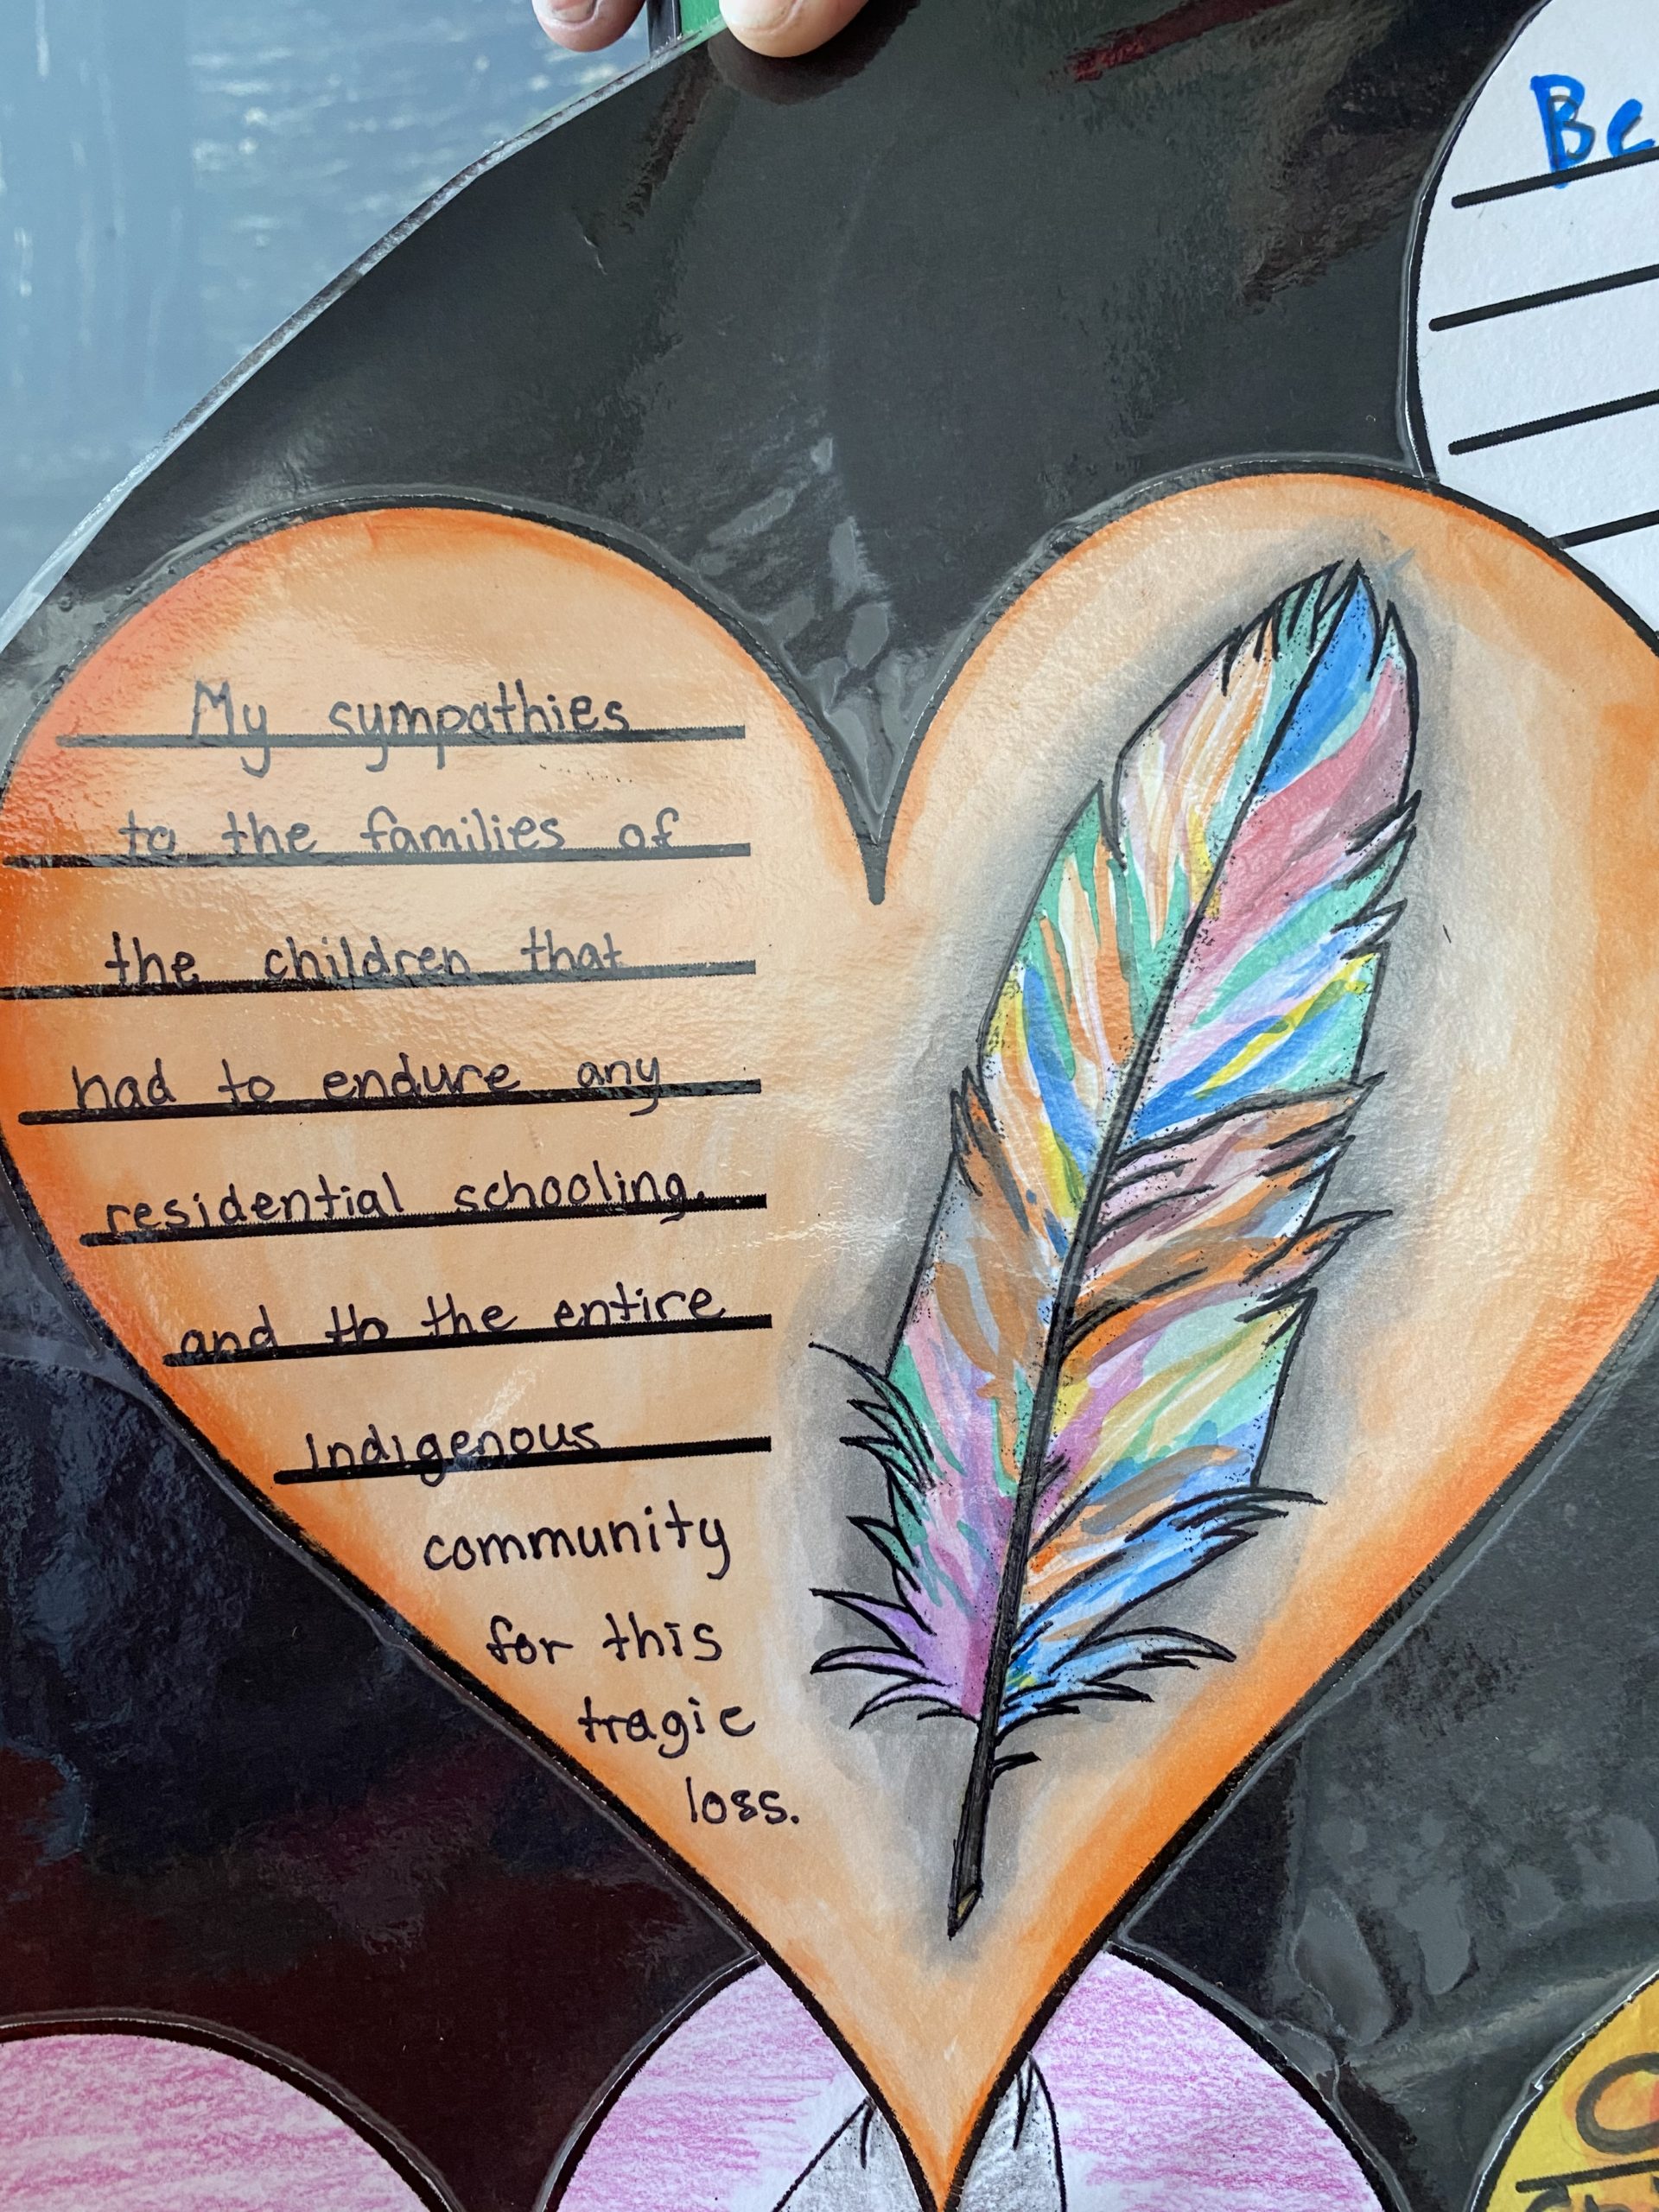 My sympathies
to the families of
the children that
had to endure any
residential schooling,
and to the entire
Indigenous
community
for this
tragic
loss.